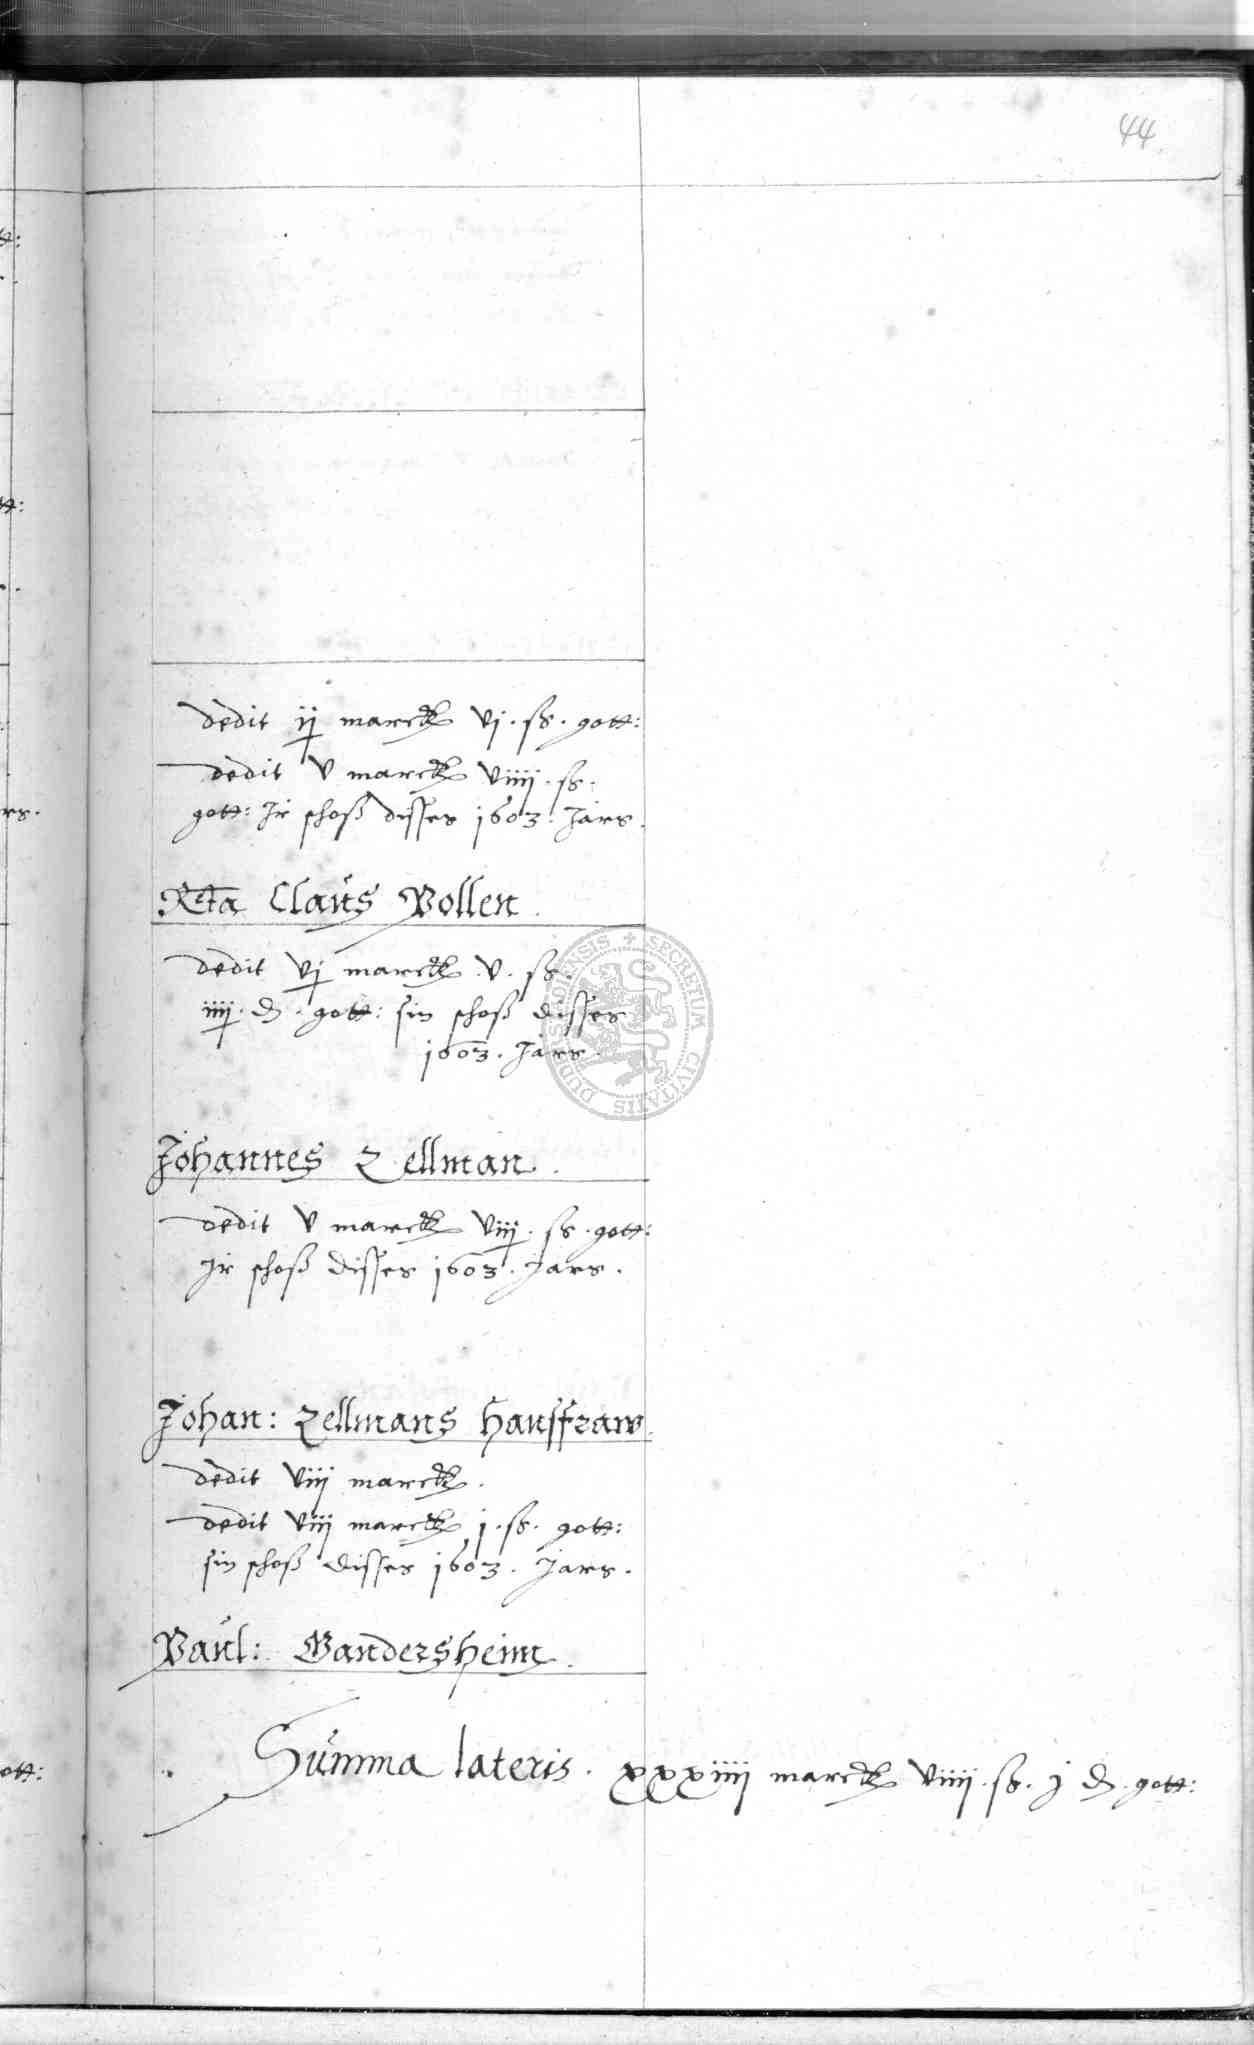 44
dedit ij marck vj. ß. gott:
dedit v marck viiij. ß.
gott: Jr schoß disses 1603. Jars.
Rcta Claus Pollen
dedit vj marck. v. ß.
iiij. d. gott: sin schoß disses
1603. Jars.
Johannes Zellman.
dedit v marck viij. ß. gott:
Jr schoß disses 1603. Jars.
Johan: Zellmans Hausfraw.
dedit viij marck.
dedit viij marck j. ß. gott:
sin schoß disses 1603. Jars.
Paul: Gandersheim.
Summa lateris. xxxiiij marck viiij. ß. j d. gott:
SECRETUM CIVITATIS DUDERSTADIENSIS